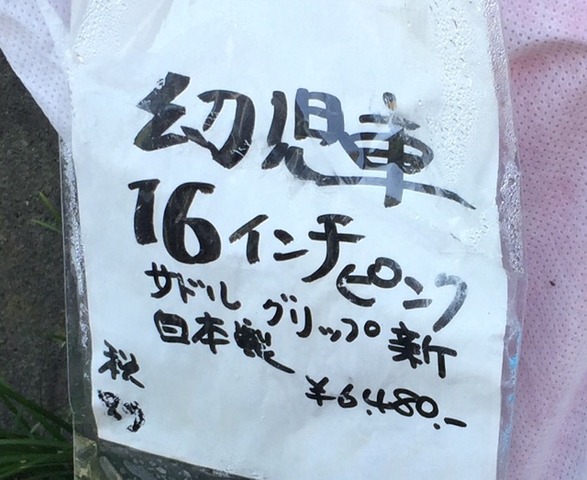 幼児車
16インチピンク
サドル グリップ新
日本製
税
¥6,480.-